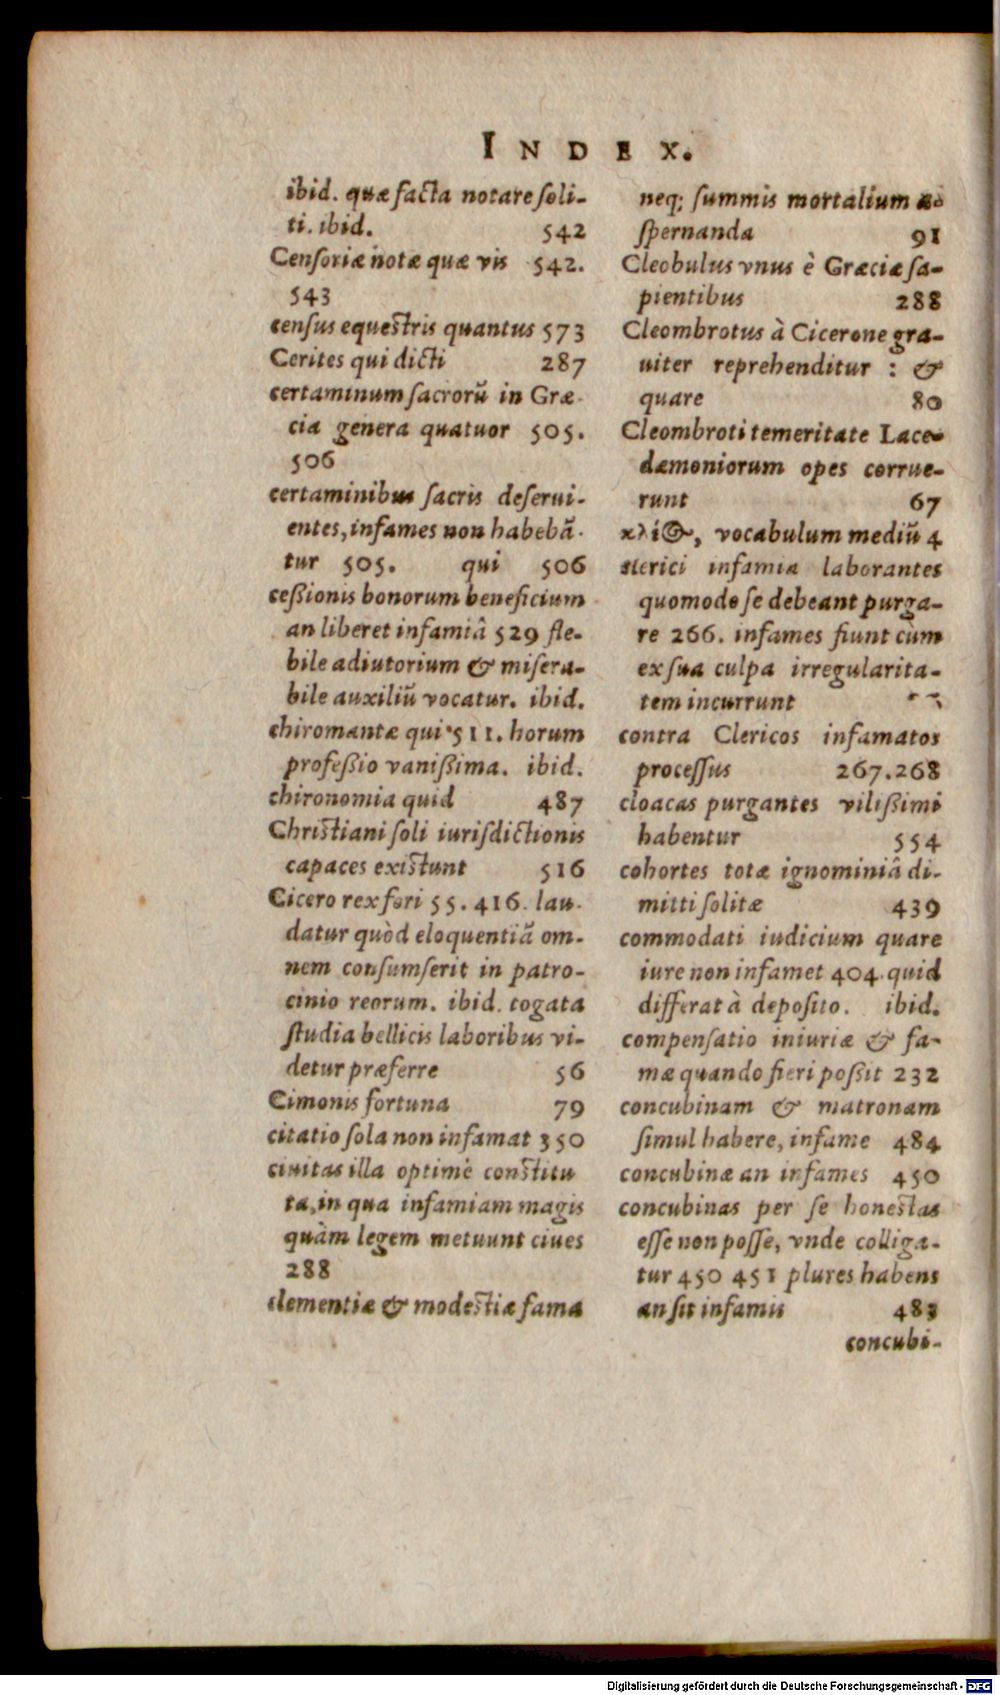 INDEX.
ibid. quæ facta notare soli-
ti. ibid. 542
Censoriæ notæ quæ vis 542.
543
census equestris quantus 573
Cerites qui dicti 287
certaminum sacrorũ in Græ-
cia genera quatuor 505.
506
certaminibus sacris deserui-
entes, infames non habebã-
tur 505. qui 506
ceßionis bonorum beneficium
an liberet infamiâ 529 fle-
bile adiutorium & misera-
bile auxiliũ vocatur. ibid.
chiromantæ qui 511. horum
profeßio vanißima. ibid.
chironomia quid 487
Christiani soli iurisdictionis
capaces existunt 516
Cicero rex fori 55. 416. lau-
datur quòd eloquentiã om-
nem consumserit in patro-
cinio reorum. ibid. togata
studia bellicis laboribus vi-
detur præferre 56
Cimonis fortuna 79
citatio sola non infamat 350
ciuitas illa optimè constitu
ta, in qua infamiam magis
quàm legem metuunt ciues
288
clementiæ & modestiæ fama
neq; summis mortalium
spernanda 91
Cleobulus vnus è Græciæ sa-
pientibus 288
Cleombrotus à Cicerone gra-
uiter reprehenditur : &
quare 80
Cleombroti temeritate Lace-
dæmoniorum opes corrue-
runt 67
vocabulum mediũ 4
clerici infamia laborantes
quomodo se debeant purga-
re 266. infames fiunt cùm
ex sua culpa irregularita-
tem incurrunt
contra Clericos infamatos
processus 267.268
cloacas purgantes vilißimi
habentur 554
cohortes totæ ignominiâ di-
mitti solitæ 439
commodati iudicium quare
iure non infamet 404. quid
differat à deposito. ibid.
compensatio iniuriæ & fa-
mæ quando fieri poßit 232
concubinam & matronam
simul habere, infame 484
concubinæ an infames 450
concubinas per se honestas
esse non posse, vnde colliga-
tur 450 451 plures habens
an sit infamis 483
concubi-
Digitalisierung gefördert durch die Deutsche Forschungsgemeinschaft - DFG